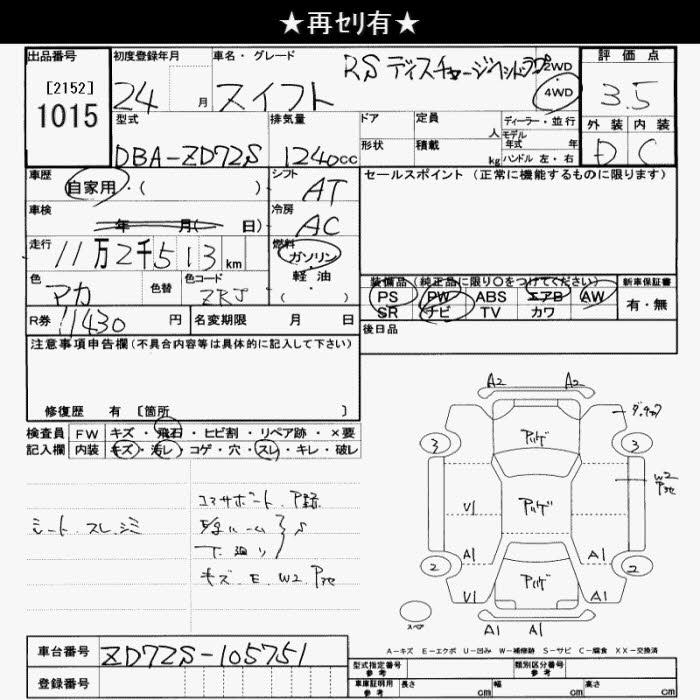 ★再ｾﾘ有★
出品番号
[2152]
1015
初度登録年月
24 月
車名・グレード
スイフト
RS ディスチャージヘッドランプ
2WD
4WD
評価点
3.5
外装 内装
D C
型式
DBA-ZD72S
排気量
1240cc
ドア
定員
人
ディーラー・並行
モデル
年式 年
形状
積載
kg
ハンドル 左・右
車歴
自家用・( )
シフト
AT
セールスポイント (正常に機能するものに限ります)
車検
年 月( 日)
冷房
AC
走行
11万2千513km
燃料
ガソリン・
軽・油
( )
色
アカ
色替
色コード
ZRJ
装備品 (純正品に限り〇をつけてください)
PS PW ABS エアB AW
SR ナビ TV カワ
新車保証書
有・無
R券 11430 円
名変期限 月 日
後日品
注意事項申告欄(不具合内容等は具体的に記入して下さい)
修復歴 有 [箇所 ]
検査員 FW キズ・飛石・ヒビ割・リペア跡・×要
記入欄 内装 キズ・汚レ・コゲ・穴・スレ・キレ・破レ
コアサポート、P録
シート、スレ、シミ
下廻り S
キズ、E、W2、P
A2 A2
3 3
W2
V1
A1 A1
2 2
V1
A1
A1 A1
スペア
A-キズ E-エクボ U-凹み W-補修跡 S-サビ C-腐食 XX-交換済
車台番号 ZD72S-105751
登録番号
型式指定番号
参考
類別区分番号
参考
車庫証明用
参考
長さ cm
幅 cm
高さ cm